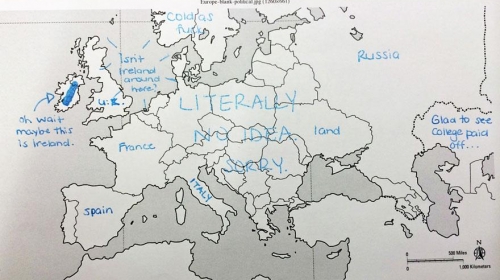 Europe-blank-political.jpg (1280x961)
Cold as
Fuck
Isn't
Ireland
around
here?
Russia
U.K.
LITERALLY
NO IDEA
SORRY.
oh wait
maybe this
is Ireland.
France
land
Glad to see
College paid
off...
ITALY
Spain
N
500 Miles
1,000 Kilometers